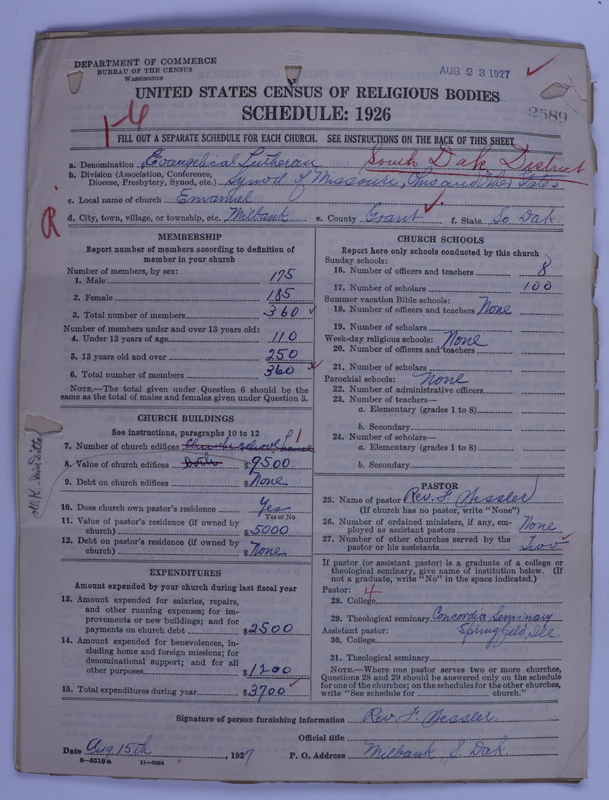 DEPARTMENT OF COMMERCE
BUREAU OF THE CENSUS
WASHINGTON
AUG 23 1927
UNITED STATES CENSUS OF RELIGIOUS BODIES
SCHEDULE: 1926
2589
1-6
FILL OUT A SEPARATE SCHEDULE FOR EACH CHURCH. SEE INSTRUCTIONS ON THE BACK OF THIS SHEET
a. Denomination Evangelical Lutheran South Dak. District
b. Division (Association, Conference, Diocese, Presbytery, Synod, etc.) Synod of Missouri, Ohio and other States
c. Local name of church Emanuel
R
d. City, town, village, or township, etc. Milbank e. County Grant f. State So. Dak.
MEMBERSHIP
Report number of members according to definition of
member in your church
Number of members, by sex:
1. Male 175
2. Female 185
3. Total number of members 360
Number of members under and over 13 years old:
4. Under 13 years of age 110
5. 13 years old and over 250
6. Total number of members 360
NOTE.—The total given under Question 6 should be
same as the total of males and females given under Question 3.
CHURCH BUILDINGS
See instructions, paragraphs 10 to 12
7. Number of church edifices church school house 1
8. Value of church edifices both $9500.
9. Debt on church edifices $None
10. Does church own pastor's residence Yes
Yes or No
11. Value of pastor's residence (if owned by
church) $5000
12. Debt on pastor's residence (if owned by
church) $None
EXPENDITURES
Amount expended by your church during last fiscal year
13. Amount expended for salaries, repairs,
and other running expenses; for im-
provements or new buildings; and for
payments on church debt $2500
14. Amount expended for benevolences, in-
cluding home and foreign missions; for
denominational support; and for all
other purposes $1200
15. Total expenditures during year $3700
CHURCH SCHOOLS
Report here only schools conducted by this church
Sunday schools:
16. Number of officers and teachers 8
17. Number of scholars 100
Summer vacation Bible schools:
18. Number of officers and teachers None
19. Number of scholars
Week-day religious schools: None
20. Number of officers and teachers
21. Number of scholars
Parochial schools: None
22. Number of administrative officers
23. Number of teachers—
a. Elementary (grades 1 to 8)
b. Secondary
24. Number of scholars—
a. Elementary (grades 1 to 8)
b. Secondary
PASTOR
25. Name of pastor Rev. F. Nessler
(If church has no pastor, write "None")
26. Number of ordained ministers, if any, em-
ployed as assistant pastors None
27. Number of other churches served by the
pastor or his assistants Two
If pastor (or assistant pastor) is a graduate of a college or
theological seminary, give name of institution below. (If
not a graduate, write "No" in the space indicated.)
Pastor:
28. College 4
29. Theological seminary Concordia Seminary
Assistant pastor: Springfield, Ill
30. College
31. Theological seminary
NOTE.—Where one pastor serves two or more churches,
Questions 28 and 29 should be answered only on the schedule
for one of the churches; on the schedules for the other churches,
write "See schedule for church."
Signature of person furnishing information Rev F. Nessler
Official title
Date Aug. 15th, 1927 P. O. Address Milbank, S. Dak.
8-5513a 11-9034